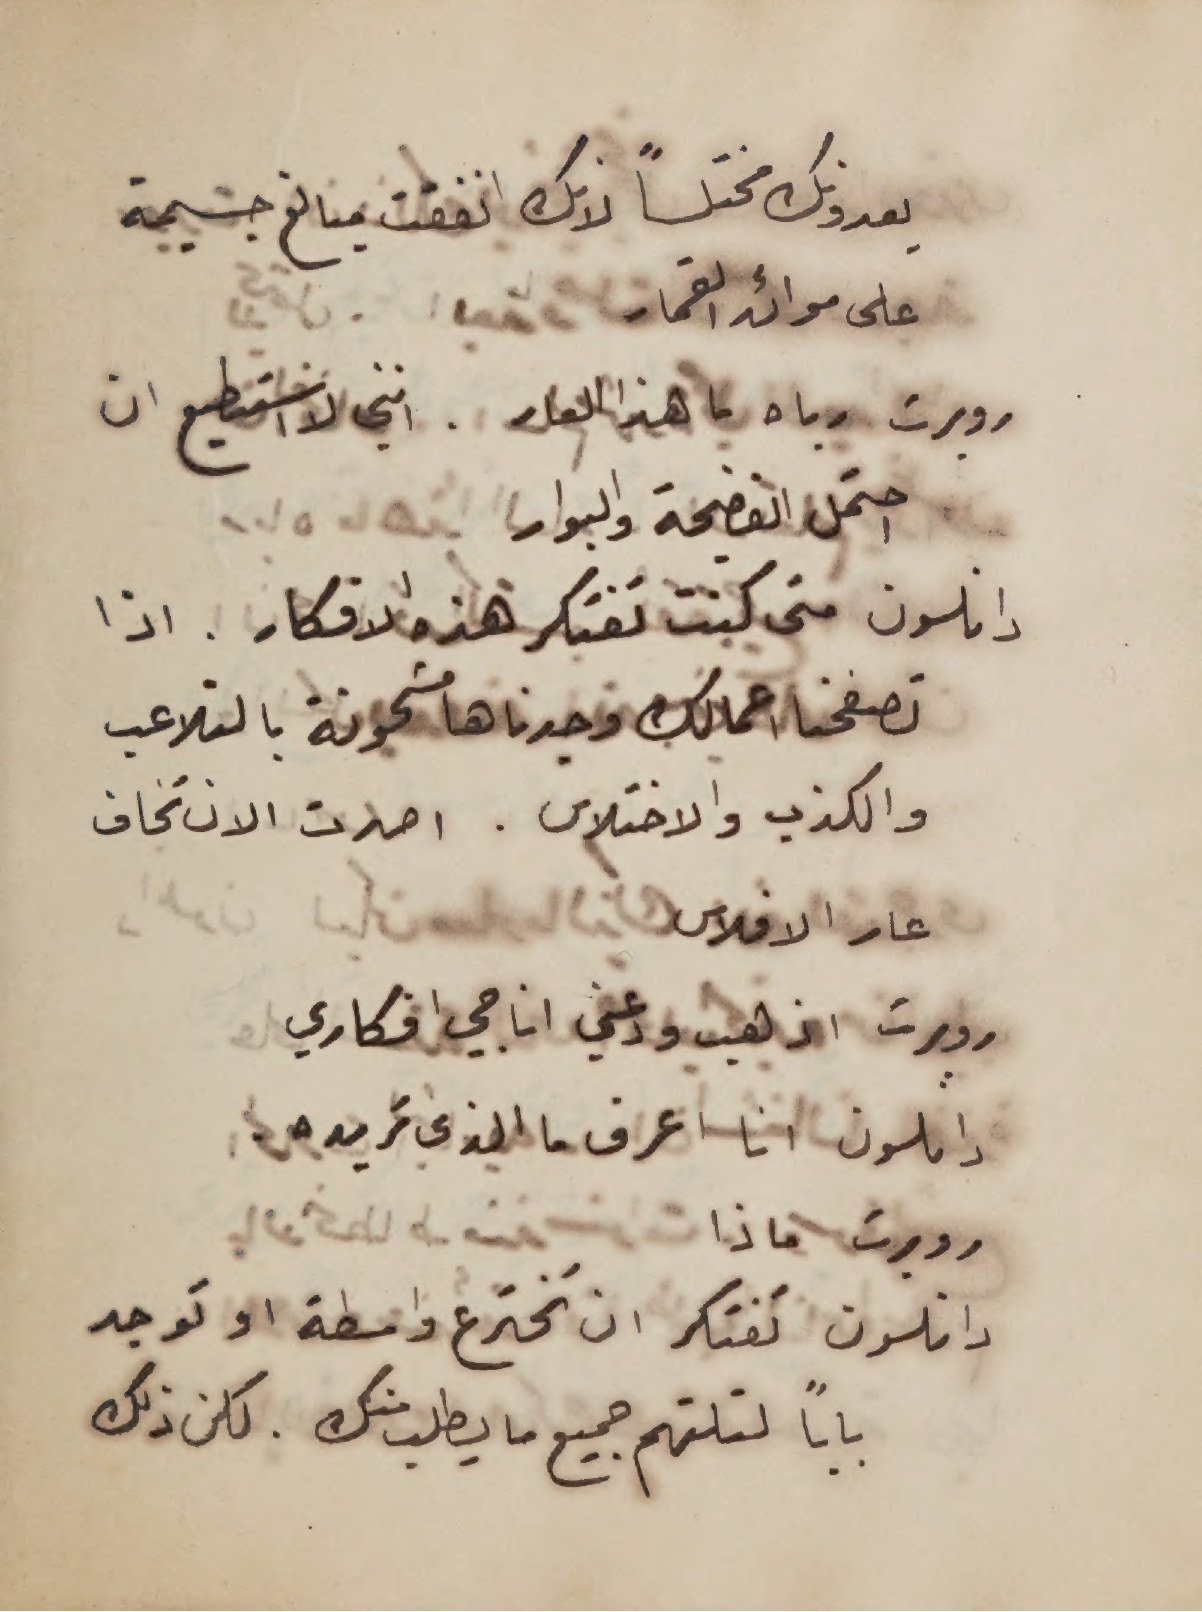 يعدونك مختلساً لانك انفقت مبالغ جسيمة
على موائد القمار
روبرت رباه ما هذا العار . انني لا استطيع ان
احتمل الفضيحة والبوار
دانلسون متى كنت تفتكر هذه الافكار . اذا
تصفحنا اعمالك وجدناها مشحونة بالتلاعب
والكذب والاختلاس . اصرت الان تخاف
عار الافلاس
روبرت اذهب ودعني اناجي افكاري
دانلسون انا اعرف ما الذي تريده .
روبرت ماذا
دانلسون تفتكر ان تخترع واسطة او توجد
باباً لتلتهم جميع ما يطلب منك . لكن ذلك